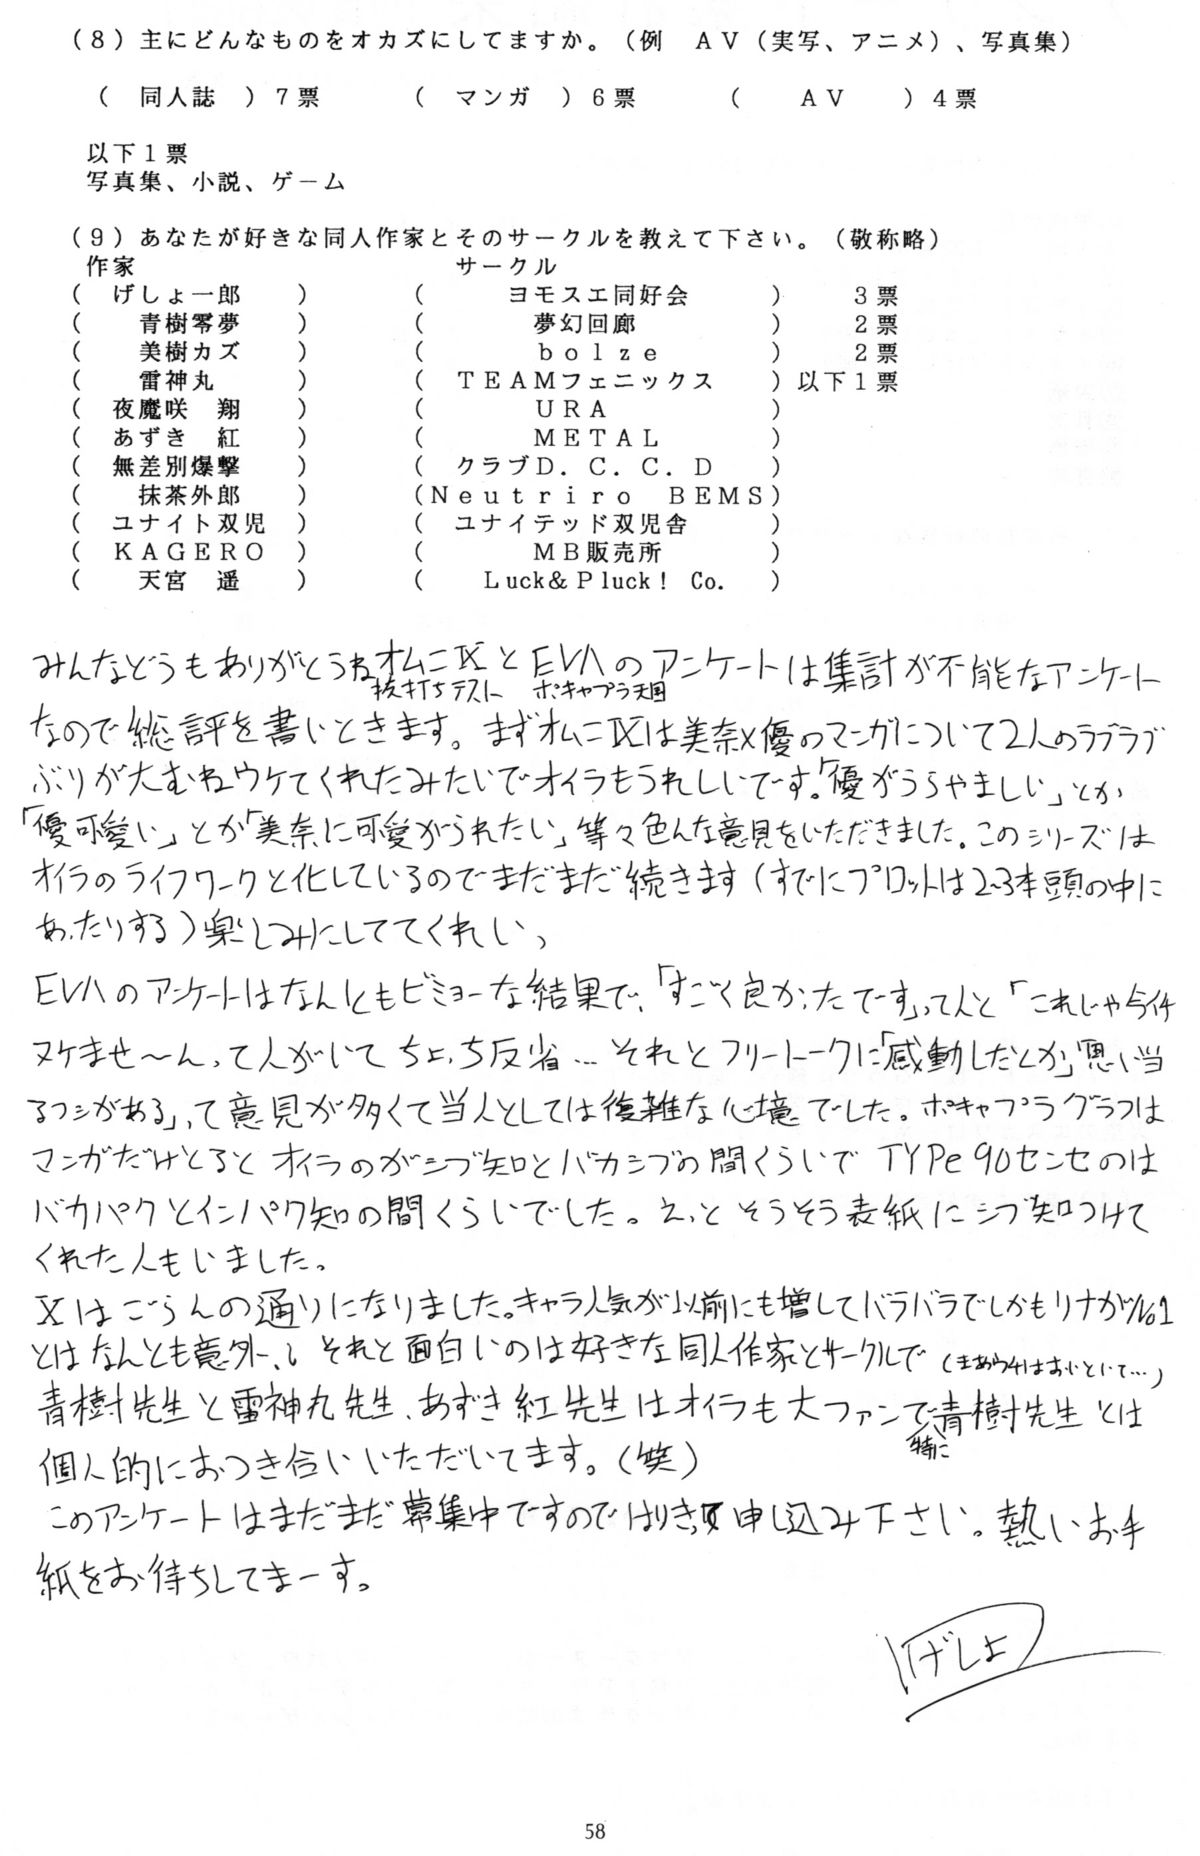 (8)主にどんなものをオカズにしてますか。(例　AV(実写、アニメ)、写真集)
(　同人誌　)7票　　(　マンガ　)6票　　(　AV　)4票
以下1票
写真集、小説、ゲーム
(9)あなたが好きな同人作家とそのサークルを教えて下さい。(敬称略)
作家　　サークル
(　げしょ一郎　)　(　ヨモスエ同好会　)　3票
(　青樹零夢　)　(　夢幻回廊　)　2票
(　美樹カズ　)　(　bolze　)　2票
(　雷神丸　)　(　TEAMフェニックス　)以下1票
(　夜魔咲　翔　)　(　URA　)
(　あずき　紅　)　(　METAL　)
(　無差別爆撃　)　(　クラブD.C.C.D　)
(　抹茶外郎　)　(Neutriro　BEMS)
(　ユナイト双児　)　(　ユナイテッド双児舎　)
(　KAGERO　)　(　MB販売所　)
(　天宮　遥　)　(　Luck&Pluck! Co.　)
みんなどうもありがとうねオムニⅨとEVAのアンケートは集計が不能なアンケート
抜打ちテスト　ボキャブラ天国
なので総評を書いときます。まずオムニⅨは美奈×優のマンガについて2人のラブラブ
ぶりが大むねウケてくれたみたいでオイラもうれしいです。「優がうらやましい」とか
「優可愛い」とか「美奈に可愛がられたい」等々色んな意見をいただきました。このシリーズは
オイラのライフワークと化しているのでまだまだ続きます(すでにプロットは2~3本頭の中に
あったりする)楽しみにしててくれい、
EVAのアンケートはなんともビミョーな結果で、「すごく良かったです」って人と「これじゃ今イチ
ヌケませ〜ん」って人がいてちょっち反省…それとフリートークに「感動したとか」「思い当
るフシがある」って意見が多くて当人としては復雑な心境でした。ボキャブラグラフは
マンガだけとるとオイラのがシブ知とバカシブの間くらいでTYPe90センセのは
バカパクとインパク知の間くらいでした。えっとそうそう表紙にシブ知つけて
くれた人もいました。
Ⅹはごらんの通りになりました。キャラ人気が以前にも増してバラバラでしかもリナがNo1
とはなんとも意外、、それと面白いのは好きな同人作家とサークルで(まあウチはおいといて…)
青樹先生と雷神丸先生、あずき紅先生はオイラも大ファンで青樹先生とは
特に
個人的におつき合いいただいてます。(笑)
このアンケートはまだまだ募集中ですのではりきって申し込み下さい。熱いお手
紙をお待ちしてまーす。
げしょ
58